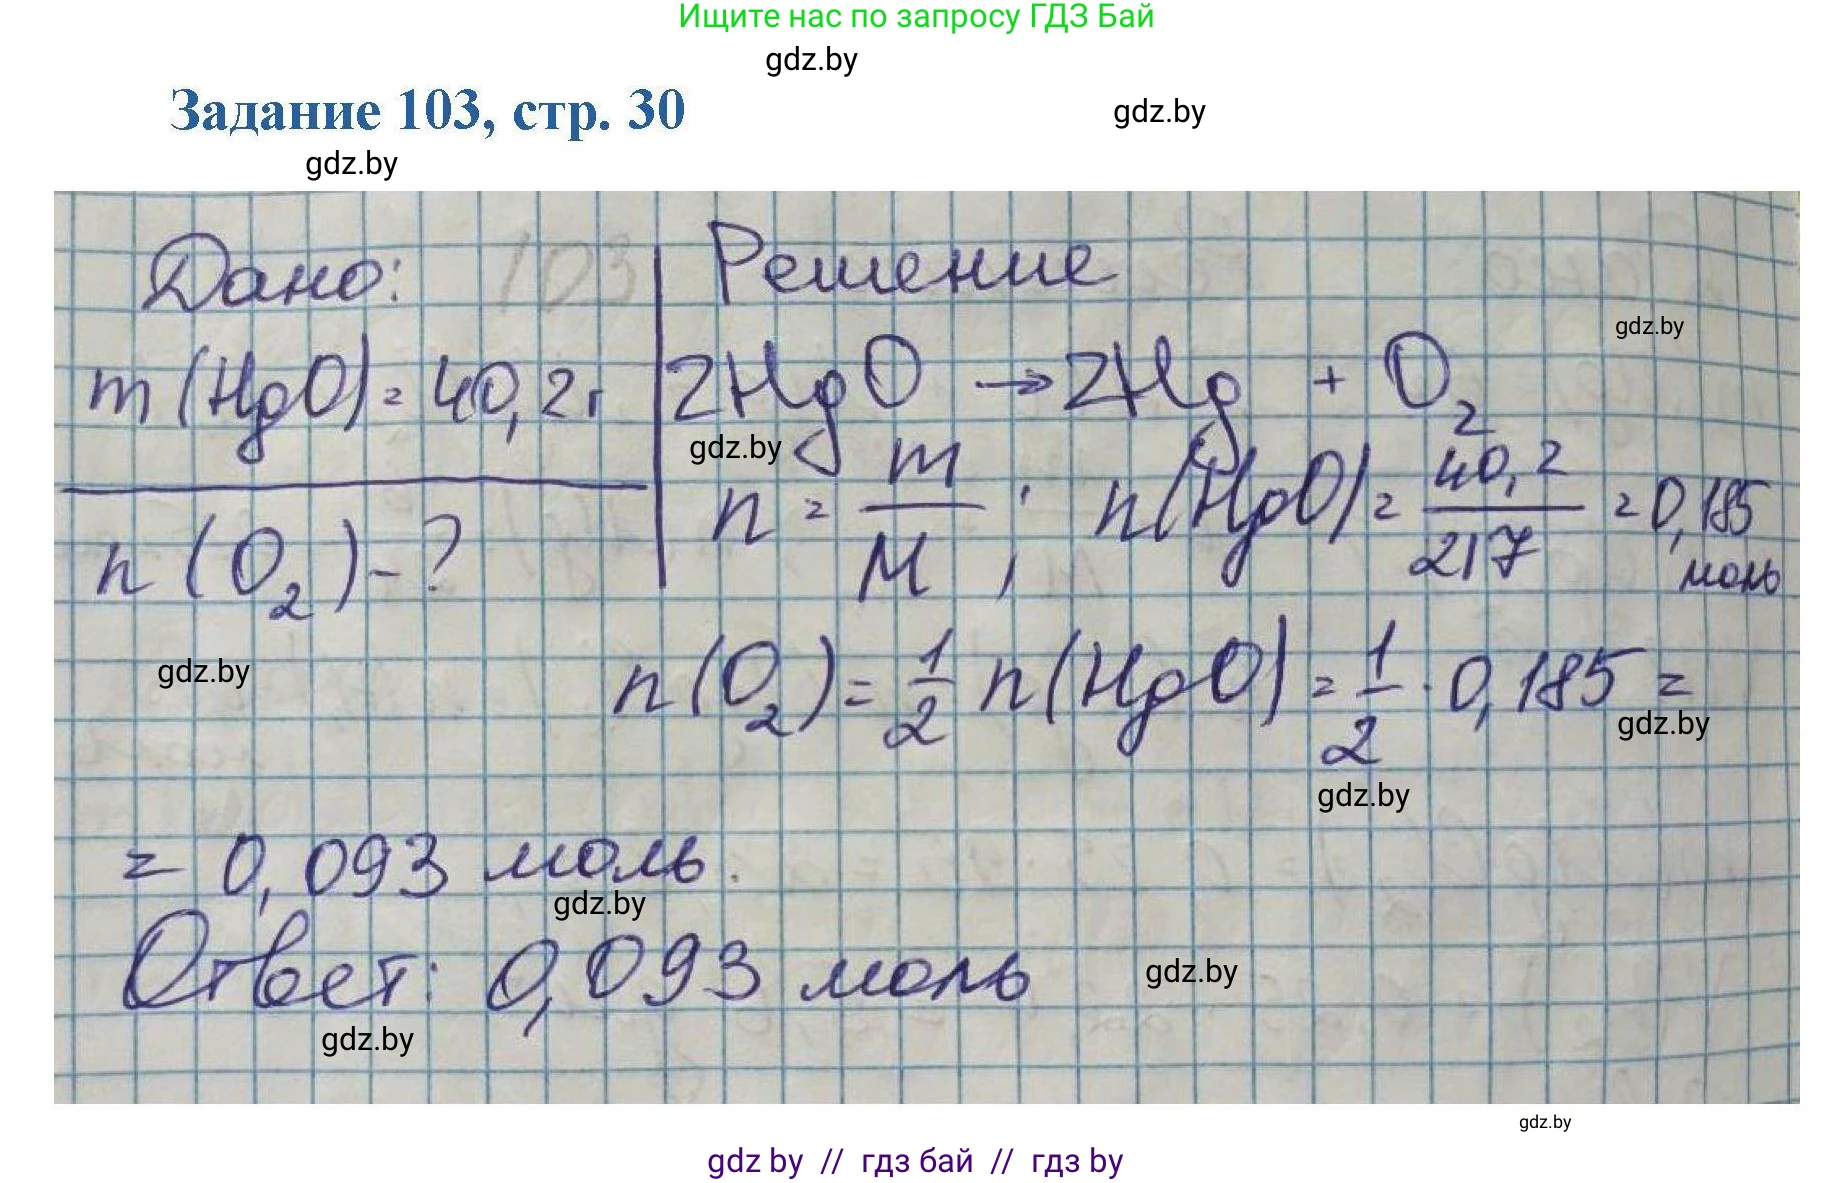 Ищите нас по запросу ГДЗ Бай
gdz.by
Задание 103, стр. 30
gdz.by
gdz.by
Дано: 103
m (HgO) = 40,2 г
n (O₂) - ?
Решение
gdz.by
2HgO → 2Hg + O₂
gdz.by
n = m/M ; n(HgO) = 40,2/217 = 0,185 моль
gdz.by
n(O₂) = 1/2 n(HgO) = 1/2 · 0,185 =
gdz.by
gdz.by
= 0,093 моль.
gdz.by
Ответ: 0,093 моль
gdz.by
gdz.by
gdz.by
gdz by // гдз бай // гдз by